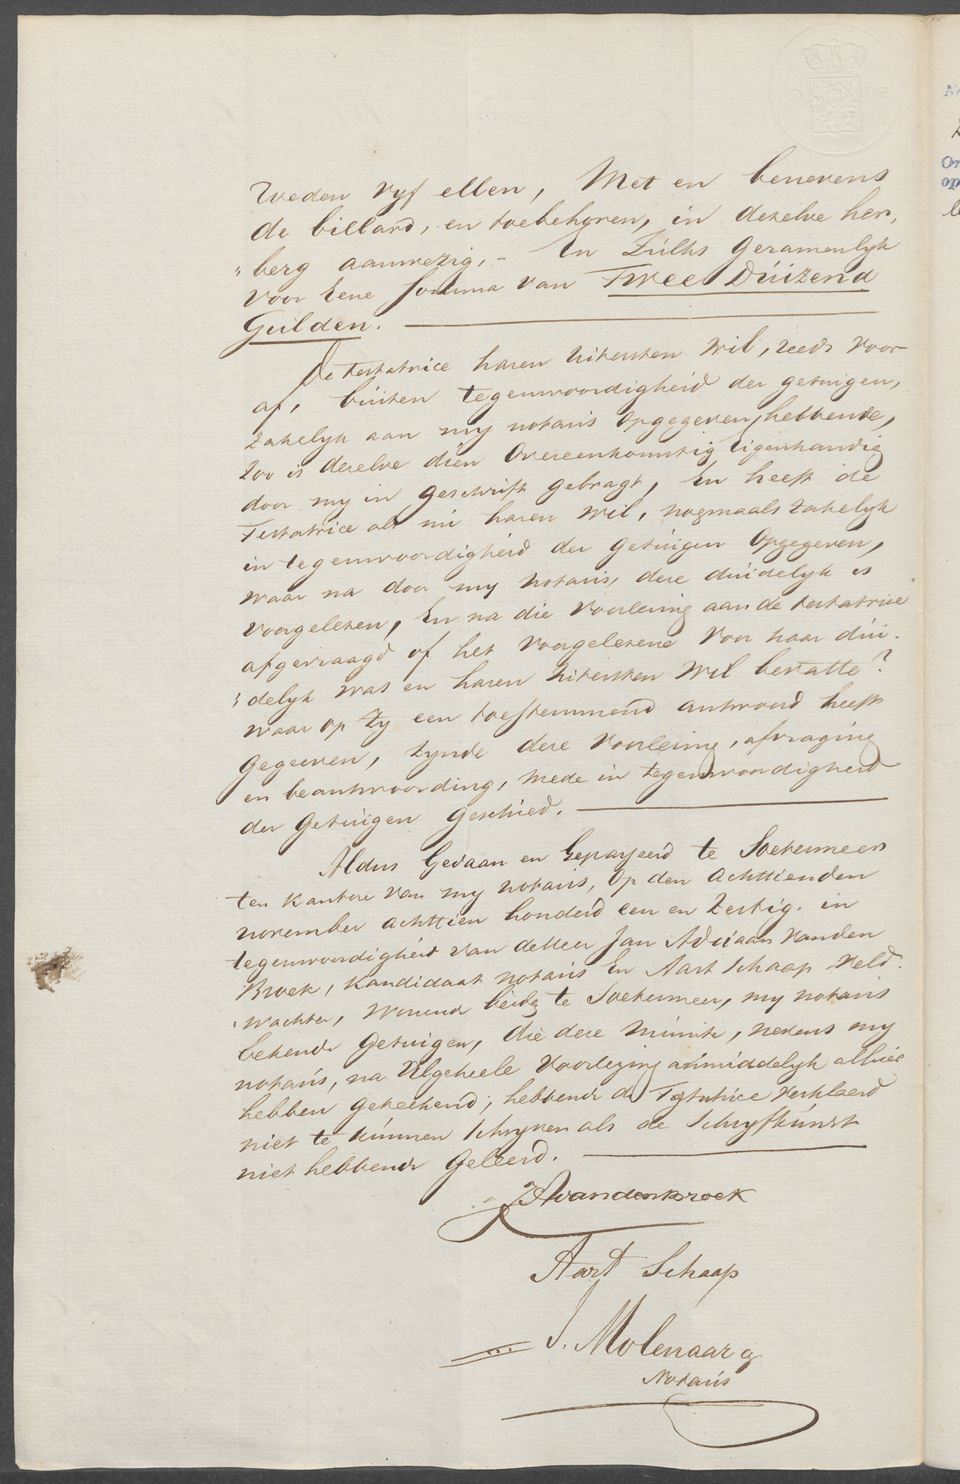 Weden vyf ellen, Met en benevens
de billard, en toebehoren, in dezelve her,
"berg aanwezig, - En Zúlks Gezamenlyk
voor Eene somma van Twee Dúizend
Gúlden.
De testatrice haren Uitersten wil, reeds voor
af, búiten tegenwoordigheid der getuigen,
zakelyk aan my notaris opgegeven hebbende,
Zoo is dezelve dien Overeenkomstig eigenhandig
door my in geschrift gebragt, En heeft de
Testatrice als nú haren wil, nogmaals zakelyk
in tegenwoordigheid der getuigen Opgegeven,
waar na door my notaris, deze dúidelyk is
voorgelezen, En na die voorlezing aan de testatrice
afgevraagd of het voorgelezene voor haar dúi-
"delyk was en haren Uitersten Wil bevatte?
waar op Zy een toestemmend antwoord heeft
gegeven, Zynde deze voorlezing, afvraging
en beantwoording, mede in tegenwoordigheid
der Getuigen Geschied.
Aldus Gedaan en Gepasseerd te Soetermeer
ten kantore van my notaris, Op den Achttienden
november achttien honderd een en Zestig. in
tegenwoordigheid van de Heer Jan Adriaan vanden
Broek, kandidaat notaris En Aart Schaap veld-
"wachter, wonend beide te Soetermeer, my notaris
bekende getuigen, die deze minúte, nevens my
notaris, na Algeheele voorlezing onmiddelyk alhier
hebben geteekend; hebbende de Testatrice verklaard
niet te kúnnen schryven als de schryfkúnst
niet hebbende geleerd.
JA vandenbroek
Aart Schaap
J. Molenaar
Notaris